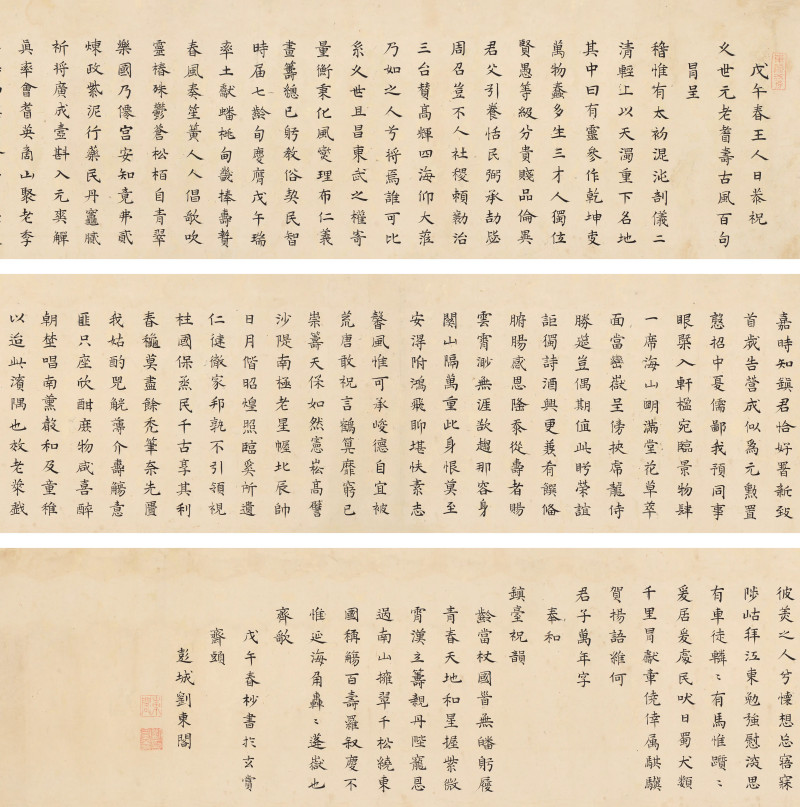 戊午春王人日恭祝
乂世元老耆壽古風百句
冒呈
稽惟有太初混沌剖儀二
清輕上以天濁重下名地
其中曰有靈參作乾坤叓
萬物蠢多生三才人獨位
賢愚等級分貴賤品倫異
君父引養恬民弼承劼毖
周召豈不人社稷賴勳治
三台賛髙輝四海仰大蒞
乃如之人兮將焉誰可比
系乂世且昌東武之權寄
量衡秉化風燮理布仁義
畫籌已躬教俗契民智
時届七齡旬慶膺戊午瑞
率土獻蟠桃甸畿捧壽贄
春風奏笙黃人人倡歌吹
靈椿殊鬱蒼松栢自青翠
樂國乃僊宫安知竟弗貳
煉政紫泥行藥民丹竈
祈將廣成壹斟入元亮觶
眞率會耆英啇山聚老季
嘉時知鎮君恰好署新致
首歲告營成似為元勲置
招中憂儒鄙我預同事
眼槩入軒楹宛臨景物肆
一席海山眀滿堂花草萃
面當巒嶽呈傍挾席侍
勝筵豈偶期值此眄榮誼
詎獨詩酒興更兼有饌偹
腑腸感恩隆黍從壽者賜
雲霄渺無涯欲趨那容身
関山隔萬重此身恨莫至
安淂附鴻飛聊堪快素志
馨風惟可承峻德自宜被
荒唐敢祝言鶴算靡窮已
崇籌天保如然憲崧髙譬
沙隄南極老星幄北辰帥
日月偕昭煌照臨奚所遺
仁徤儆家邦孰不引領視
柱國保烝民千古享其利
春穐莫盡餘禿筆奈先
我姑酌兕觥薄介壽觴意
匪只座欣酣庶物咸喜醉
朝埜唱南薰敲和及童稚
以迨此濱隅也效老萊戱
彼羙之人兮懷想忘寤寐
陟岵拜江東勉強慰淡思
有車徒轔〻有馬惟躓〻
爰居爰處民吠日蜀犬類
千里冒獻章僥倖属騏驥
賀揚語維何
君子萬年字
奉和
鎮臺祝韻
齡當杖國眥無皤躬履
青春天地和星握紫微
霄漢主籌親丹陛寵恩
過南山擁翠千松繞東
國稱觴百壽羅叙慶不
惟延海角轟〻蓬嶽也
齊歌
戊午春杪書於玄賞
齋頭
彭城劉東閣